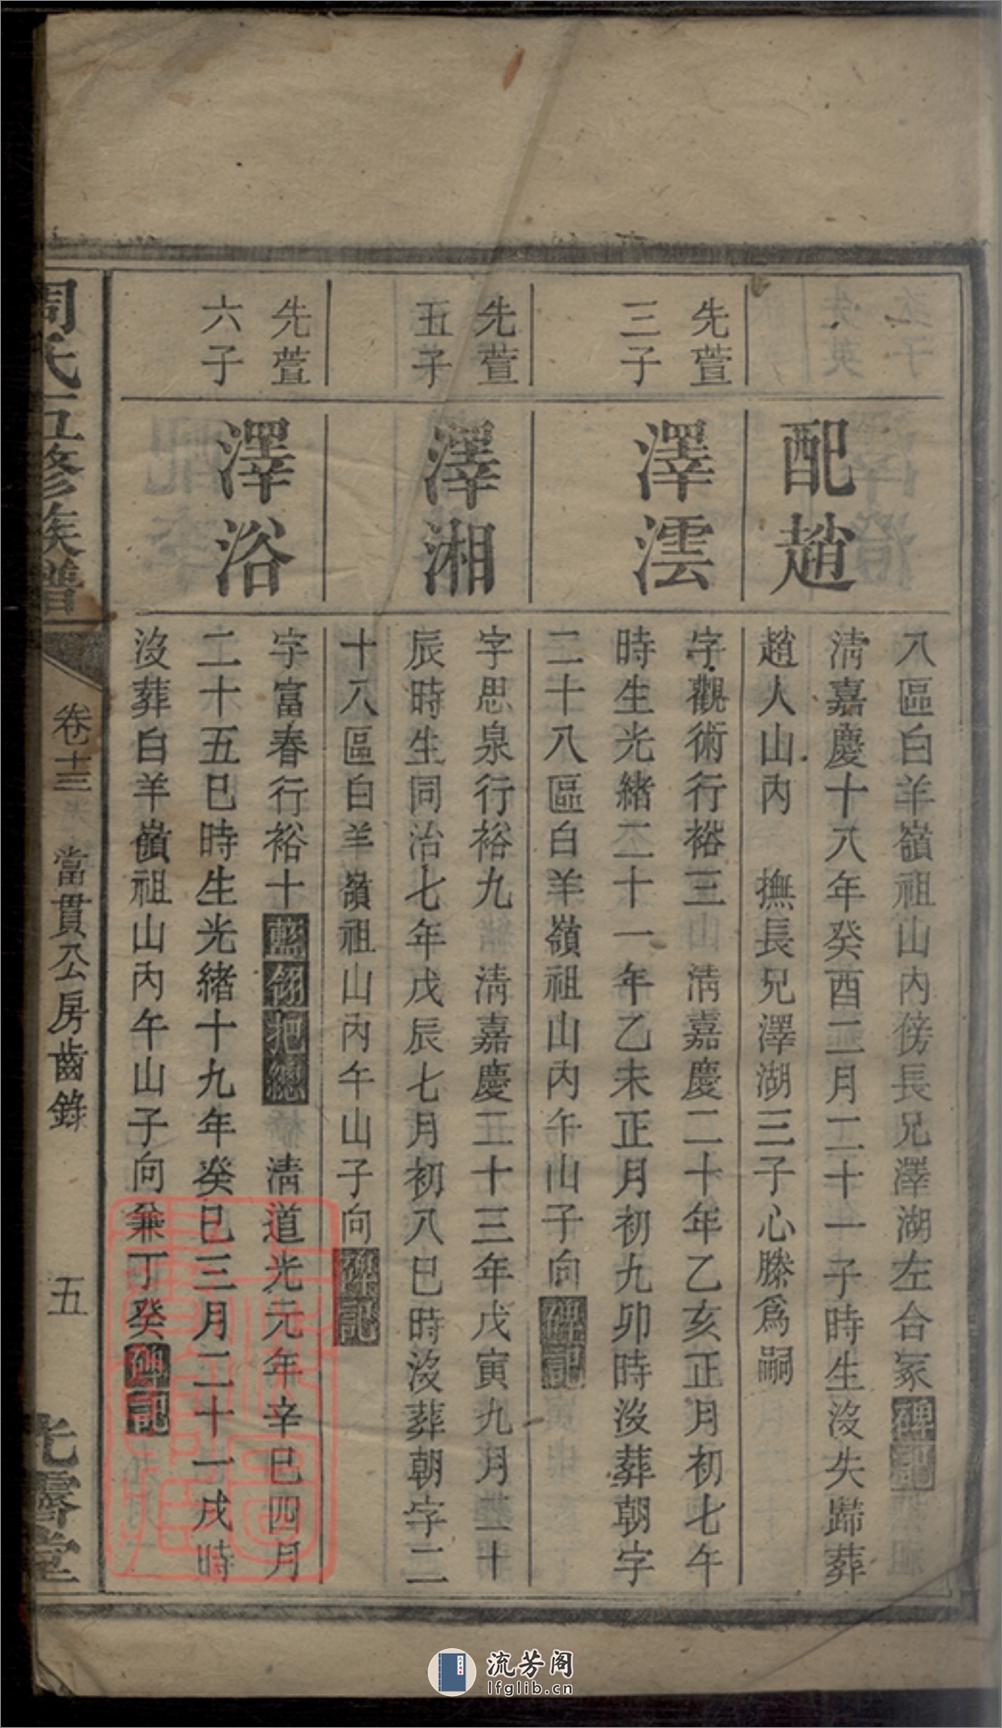 八區白羊嶺祖山內傍長兄澤湖左合冢碑記
配趙
淸嘉慶十八年癸酉二月二十一子時生沒失歸葬
趙人山內 撫長兄澤湖三子心滕爲嗣
先萱
三子
澤澐
字觀術行裕三 淸嘉慶二十年乙亥正月初七午
時生光緒二十一年乙未正月初九卯時沒葬朝字
二十八區白羊嶺祖山內午山子向碑記
先萱
五子
澤湘
字思泉行裕九 淸嘉慶二十三年戊寅九月二十
辰時生同治七年戊辰七月初八巳時沒葬朝字二
十八區白羊嶺祖山內午山子向碑記
先萱
六子
澤浴
字富春行裕十藍翎把總 淸道光元年辛巳四月
二十五巳時生光緒十九年癸巳三月二十一戌時
沒葬白羊嶺祖山內午山子向兼丁癸碑記
周氏五修族譜
卷十三
當貫公房齒錄
五
光霽堂
流芳阁
lfglib.cn